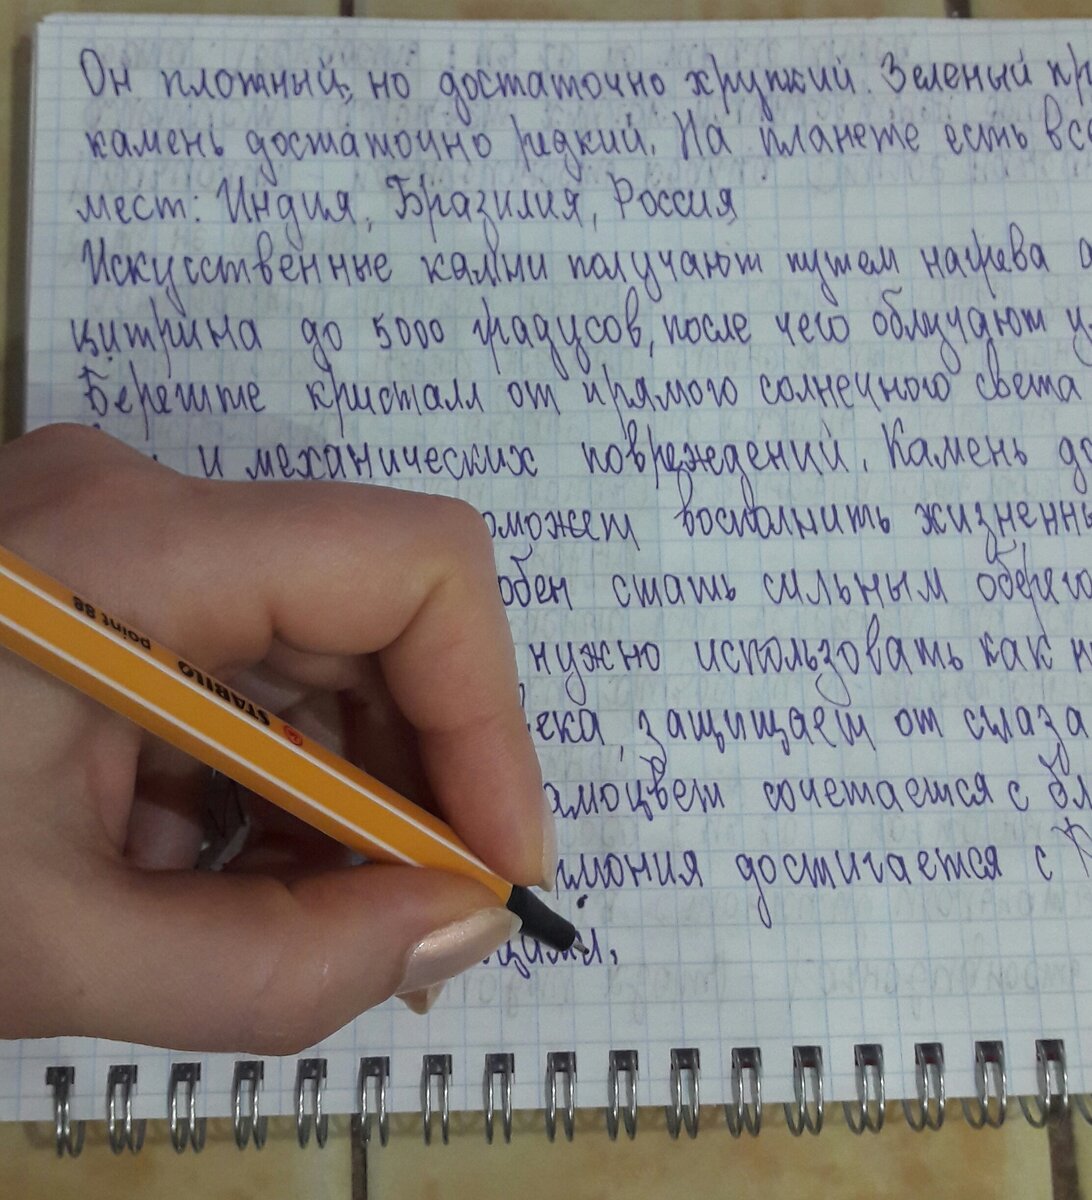 Он плотный, но достаточно хрупкий. Зеленый
камень достаточно редкий. На планете есть
мест: Индия, Бразилия, Россия
Искусственные камни получают путем нагрева
цитрина до 5000 градусов, после чего облучают
Берегите кристалл от прямого солнечного света
и механических повреждений. Камень
восполнить
стать сильным
нужно использовать как
защищает от сглаза
сочетается с
достигается с
STABILO point 88